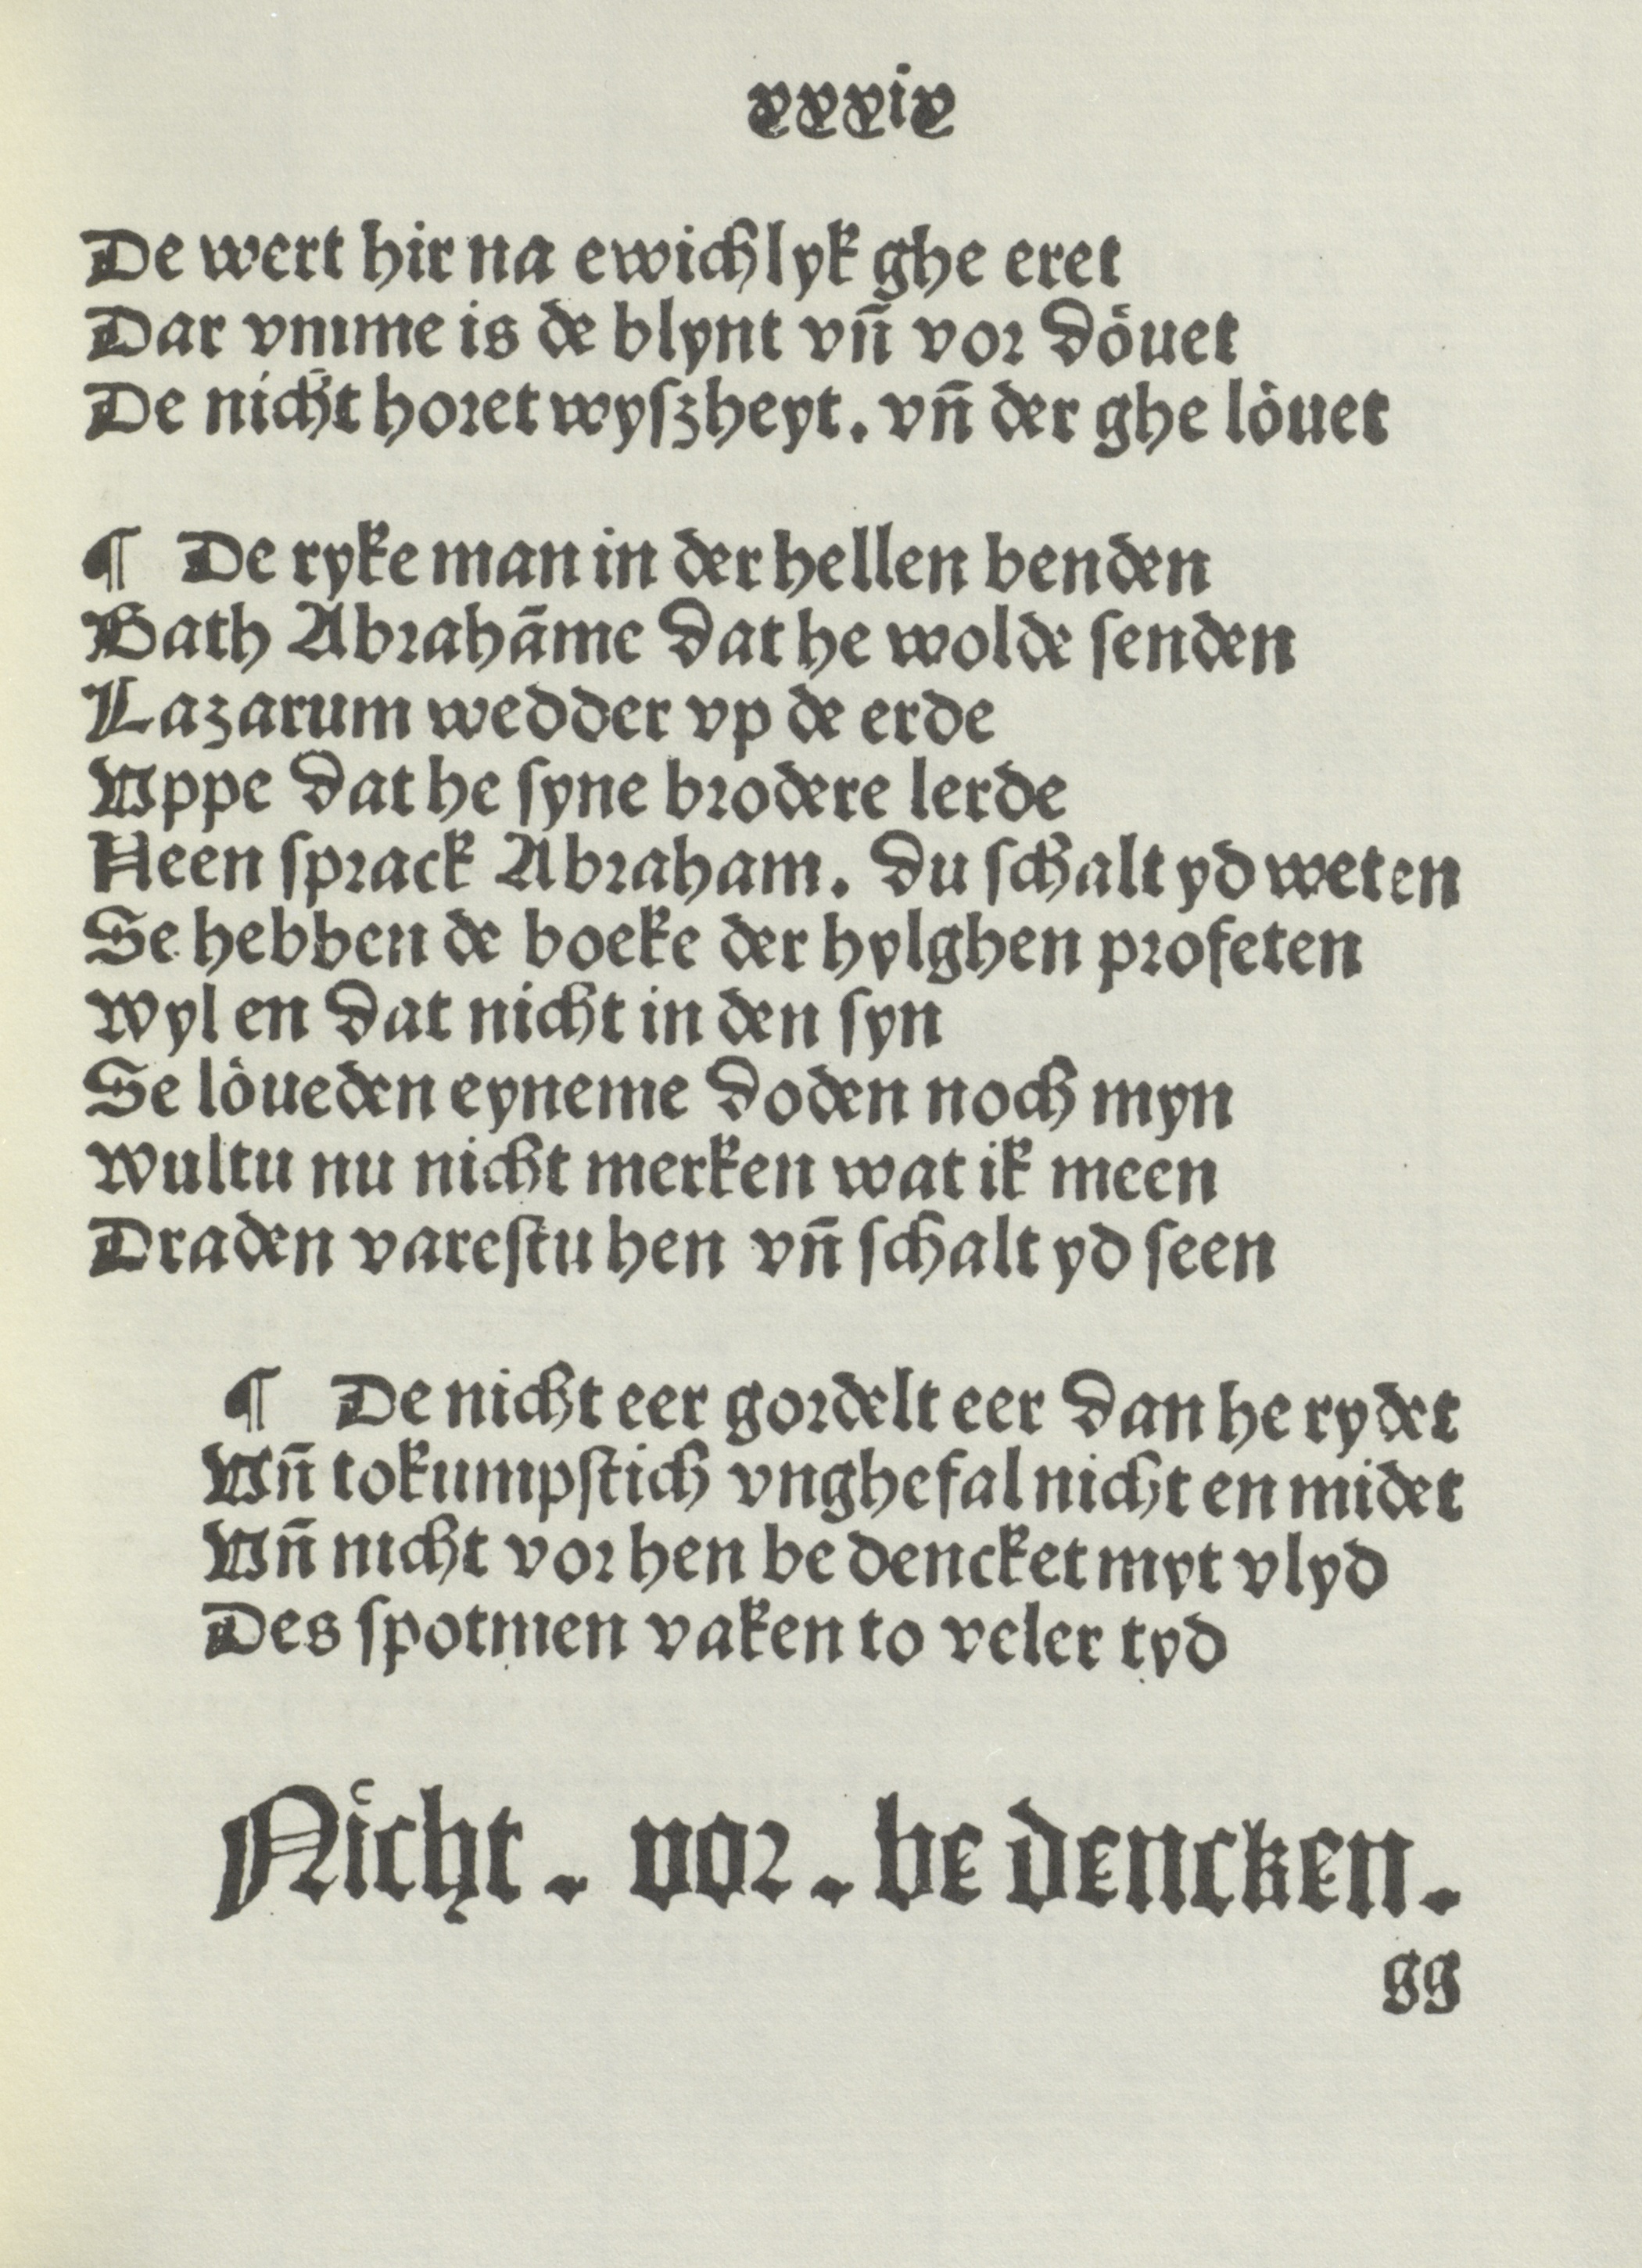 xxxix
De wert hir na ewichlyk ghe eret
Dar vmme is de blynt vñ vor döuet
De nicht horet wyſzheyt. vñ der ghe löuet
¶ De ryke man in der hellen benden
Bath Abrahāme dat he wolde ſenden
Lazarum wedder vp de erde
Vppe dat he ſyne brodere lerde
Neen ſprack Abraham. du ſchalt yd weten
Se hebben de boeke der hylghen profeten
Wyl en dat nicht in den ſyn
Se löueden eyneme doden noch myn
Wultu nu nicht merken wat ik meen
Draden vareſtu hen vñ ſchalt yd ſeen
¶ De nicht eer gordelt eer dan he rydet
Vñ tokumpſtich vnghefal nicht en midet
Vñ nicht vor hen be dencket myt vlyd
Des ſpotmen vaken to veler tyd
Nicht. vor. be dencken.
gg